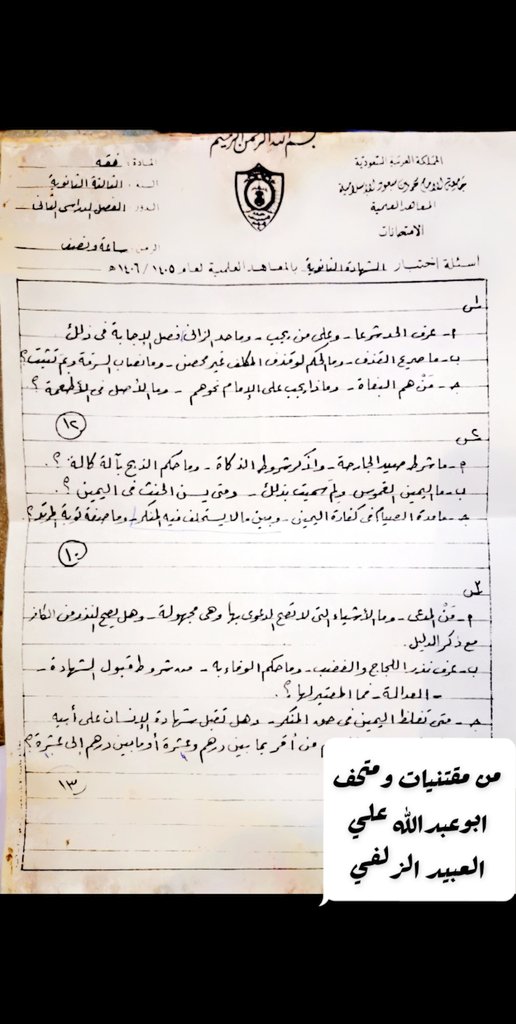 بسم الله الرحمن الرحيم
المملكة العربية السعودية
جامعة الإمام محمد بن سعود الإسلامية
المعاهد العلمية
الامتحانات
المادة: فقه
السنة: الثالثة الثانوية
الدور: الفصل الدراسي الثاني
الزمن: ساعة ونصف
أسئلة اختبار الشهادة الثانوية بالمعاهد العلمية لعام ١٤٠٥/١٤٠٦ هـ
س١
أ- عرف الحد شرعا - وعلى من يجب - وما حد الزاني فصل الإجابة في ذلك
ب- ما صريح القذف - وما الحكم لو قذف المكلف غير محصن - وما نصاب السرقة وبم تثبت؟
ج- مَنْ هم البغاة - وماذا يجب على الإمام نحوهم - وما الأصل في الأطعمة؟
١٢
س٢
أ- ما شرط صيد الجارحة - واذكر شروط الذكاة - وما حكم الذبح بآلة كالة؟.
ب- ما اليمين الغموس ولم سميت بذلك - ومتى يسن الحنث في اليمين؟.
ج- ما مدة الصيام في كفارة اليمين - وبين ما لا يستحلف فيه المنكر - وما صفة توبة المرتد؟
١٠
س٣
أ- مَنْ المدعى - وما الأشياء التي لا تصح الدعوى بها وهي مجهولة - وهل يصح النذر من الكافر
مع ذكر الدليل.
ب- عرف نذر اللجاج والغضب - وما حكم الوفاء به - من شروط قبول الشهادة -
- العدالة - فما المعتبر لها؟.
ج- متى تغلظ اليمين في حق المنكر - وهل تقبل شهادة الإنسان على أبيه
من أقر بما بين درهم وعشرة أو ما بين درهم إلى عشرة؟
١٣
من مقتنيات ومتحف
ابوعبدالله علي
العبيد الزلفي